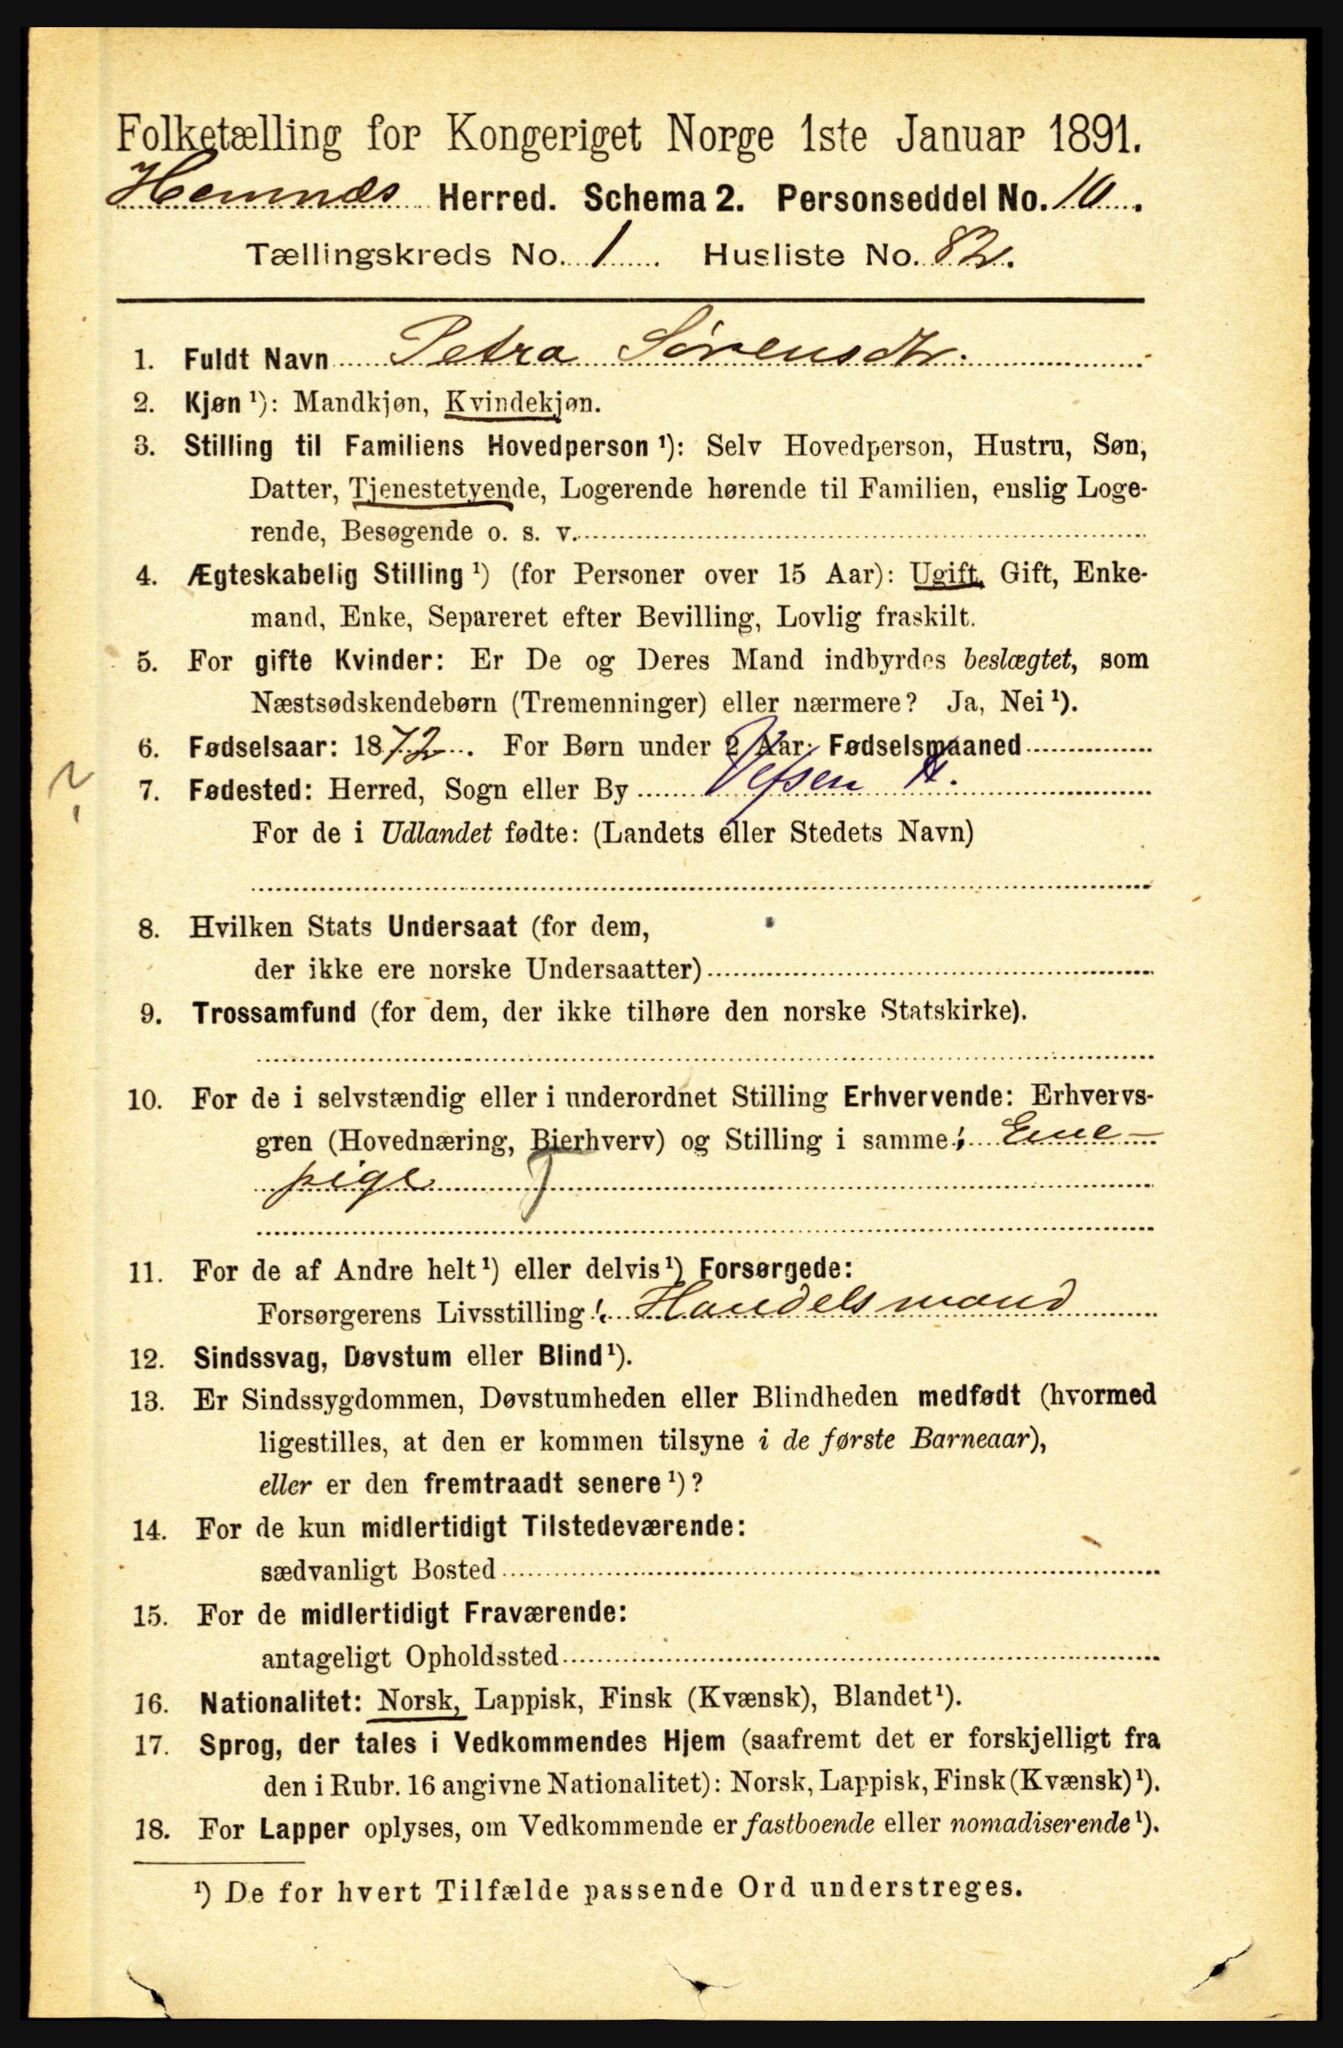 Folketælling for Kongeriget Norge 1ste Januar 1891.
Hemnæs Herred. Schema 2. Personseddel No. 10.
Tællingskreds No. 1 Husliste No. 82.
1. Fuldt Navn Petra Sørensdtr.
2. Kjøn ¹): Mandkjøn, Kvindekjøn.
3. Stilling til Familiens Hovedperson ¹): Selv Hovedperson, Hustru, Søn,
Datter, Tjenestetyende, Logerende hørende til Familien, enslig Loge-
rende, Besøgende o. s. v.
4. Ægteskabelig Stilling ¹) (for Personer over 15 Aar): Ugift, Gift, Enke-
mand, Enke, Separeret efter Bevilling, Lovlig fraskilt.
5. For gifte Kvinder: Er De og Deres Mand indbyrdes beslægtet, som
Næstsødskendebørn (Tremenninger) eller nærmere? Ja, Nei ¹).
6. Fødselsaar: 1872. For Børn under 2 Aar: Fødselsmaaned
7. Fødested: Herred, Sogn eller By Vefsen H.
?
For de i Udlandet fødte: (Landets eller Stedets Navn)
8. Hvilken Stats Undersaat (for dem,
der ikke ere norske Undersaatter)
9. Trossamfund (for dem, der ikke tilhøre den norske Statskirke).
10. For de i selvstændig eller i underordnet Stilling Erhvervende: Erhvervs-
gren (Hovednæring, Bierhverv) og Stilling i samme: Ene-
pige
11. For de af Andre helt ¹) eller delvis ¹) Forsørgede:
Forsørgerens Livsstilling: Handelsmand
12. Sindssvag, Døvstum eller Blind ¹).
13. Er Sindssygdommen, Døvstumheden eller Blindheden medfødt (hvormed
ligestilles, at den er kommen tilsyne i de første Barneaar),
eller er den fremtraadt senere ¹)?
14. For de kun midlertidigt Tilstedeværende:
sædvanligt Bosted
15. For de midlertidigt Fraværende:
antageligt Opholdssted
16. Nationalitet: Norsk, Lappisk, Finsk (Kvænsk), Blandet ¹).
17. Sprog, der tales i Vedkommendes Hjem (saafremt det er forskjelligt fra
den i Rubr. 16 angivne Nationalitet): Norsk, Lappisk, Finsk (Kvænsk) ¹).
18. For Lapper oplyses, om Vedkommende er fastboende eller nomadiserende ¹).
¹) De for hvert Tilfælde passende Ord understreges.